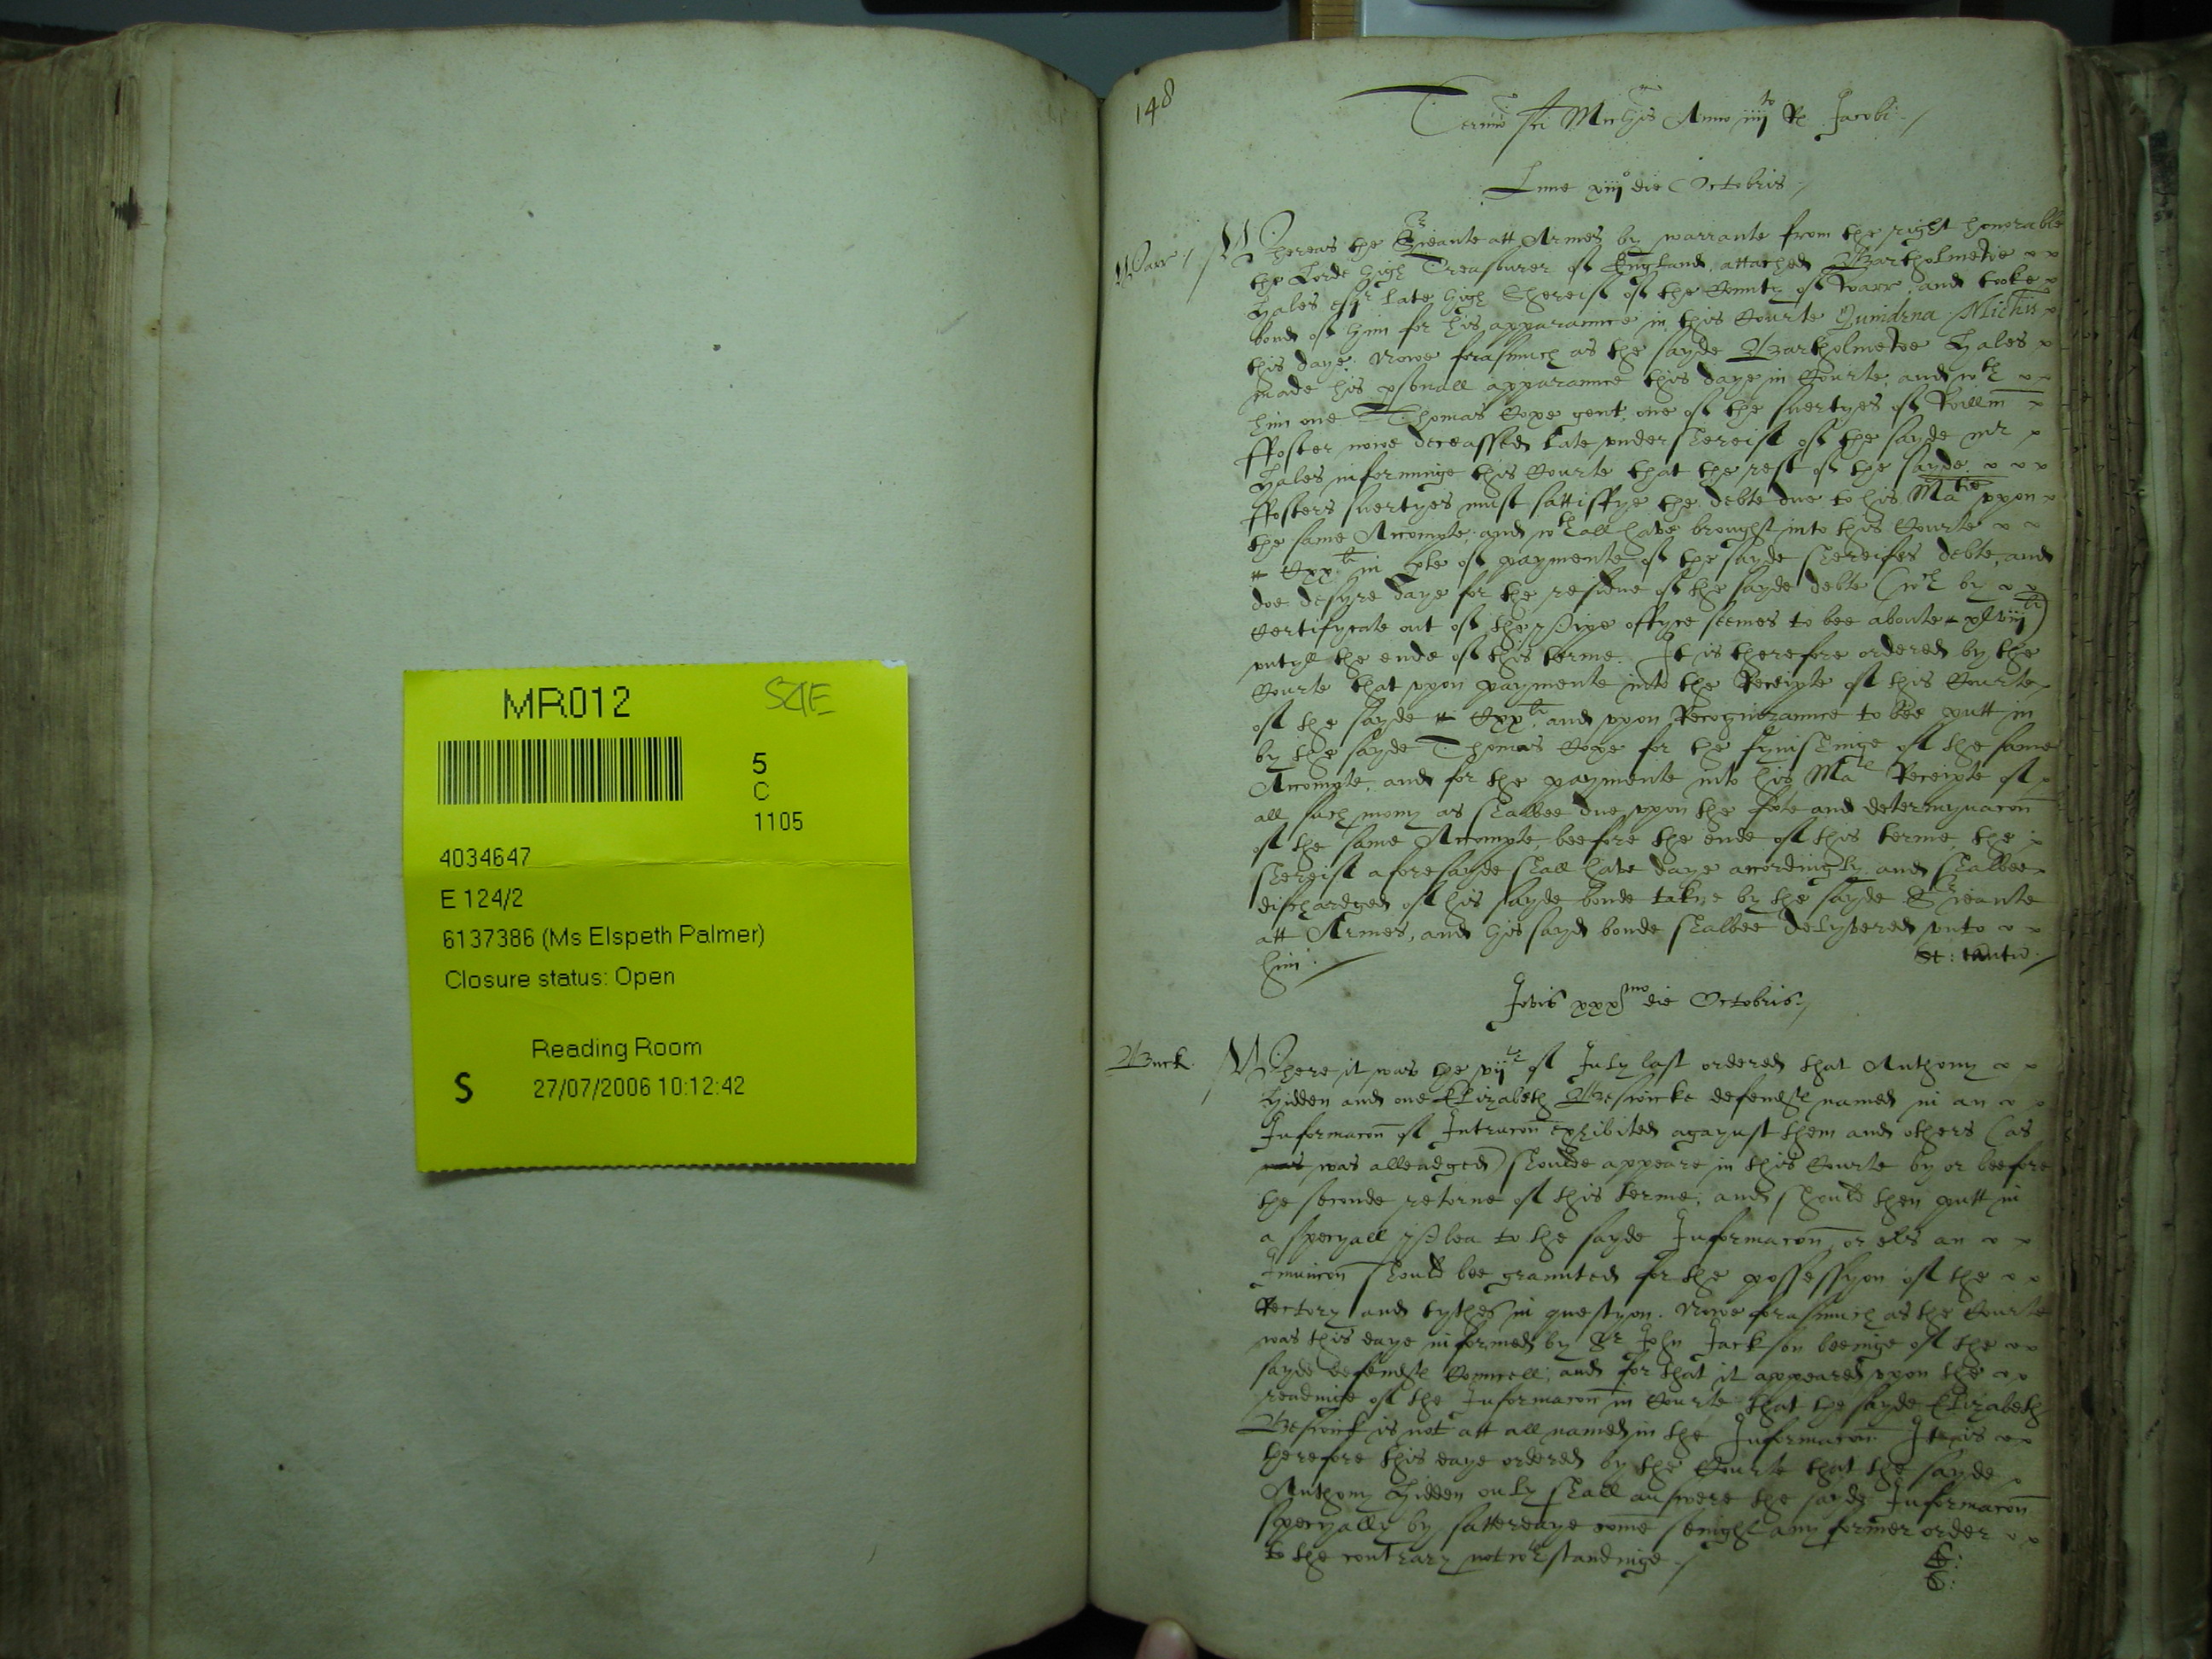 MR012
SCE
5
C
1105
4034647
E 124/2
6137386 (Ms Elspeth Palmer)
Closure status: Open
Reading Room
S 27/07/2006 10:12:42
148
Termino Sci Michis Anno iiijto R Jacobi
Lune xiijo die Octobris
Warr
Whereas the Srieante att Armes by warrante from the right honorable
the Lorde high Treasourer of England, attached Bartholmewe
Hales esqr late high Shereif of the County of Warr, and tooke
bond of him for his apparannce in this Courte Quindena Michis
this daye. Nowe forasmuch as the sayde Bartholmewe Hales
made his psonall apparannce this daye in Courte, and wth
him one Thomas Cope gent, one of the suertyes of Willm
ffoster nowe deceassed late under shereif of the sayde mr
Hales informinge this Courte that the rest of the sayde
ffosters suertyes must sattisffye the debte due to his Matie uppon
the same Accompte, and wthall have brought into this Courte
Cxxli in pte of paymente of the sayde shereifes debte, and
doe desyre daye for the residue of the sayde debte (wch by
Certifycate out of the pipe offyce seemes to bee aboute xlviijli)
untyll the ende of this terme. It is therefore ordered by the
Courte that uppon paymente into the Receipte of this Courte
of the sayde Cxxli, and uppon Recognizannce to bee putt in
by the sayde Thomas Cope for the fynishinge of the same
Accompte, and for the paymente into his Mats Receipte of
all such mony as shalbee due uppon the foote and determynacon
of the same Accompte, beefore the ende of this terme, the
shereif aforesayde shall have daye accordingly and shalbee
dischardged of his sayde bonde taken by the sayde Srieante
att Armes, and his sayd bonde shalbee delyvered unto
him
Jovis xxxmo die Octobris
Buck
Where it was the vijth of July last ordered that Anthony
Hidden and one Elizabeth Beswicke defendts named in an
Informacon of Intrucon exhibited agaynst them and others (as
was was alleadged) shoulde appeare in this Courte by or beefore
the seconde retorne of this terme, and should then putt in
a specyall plea to the sayde Informacon, or els an
Iniunccon should bee grannted for the possessyon of the
Rectory and tythes in questyon. Nowe forasmuch as the Courte
was this daye informed by Sr John Jackson beeinge of the
sayde defendts Councell, and for that it appeared uppon the
readinge of the Informacon in Courte that the sayde Elizabeth
Beswick is not att all named in the Informacon It is
therefore this daye ordered by the Courte that the sayde
Anthony Hidden only shall answere the sayde Informacon
specyally by satterdaye come senight any former order
to the contrary notwthstandinge